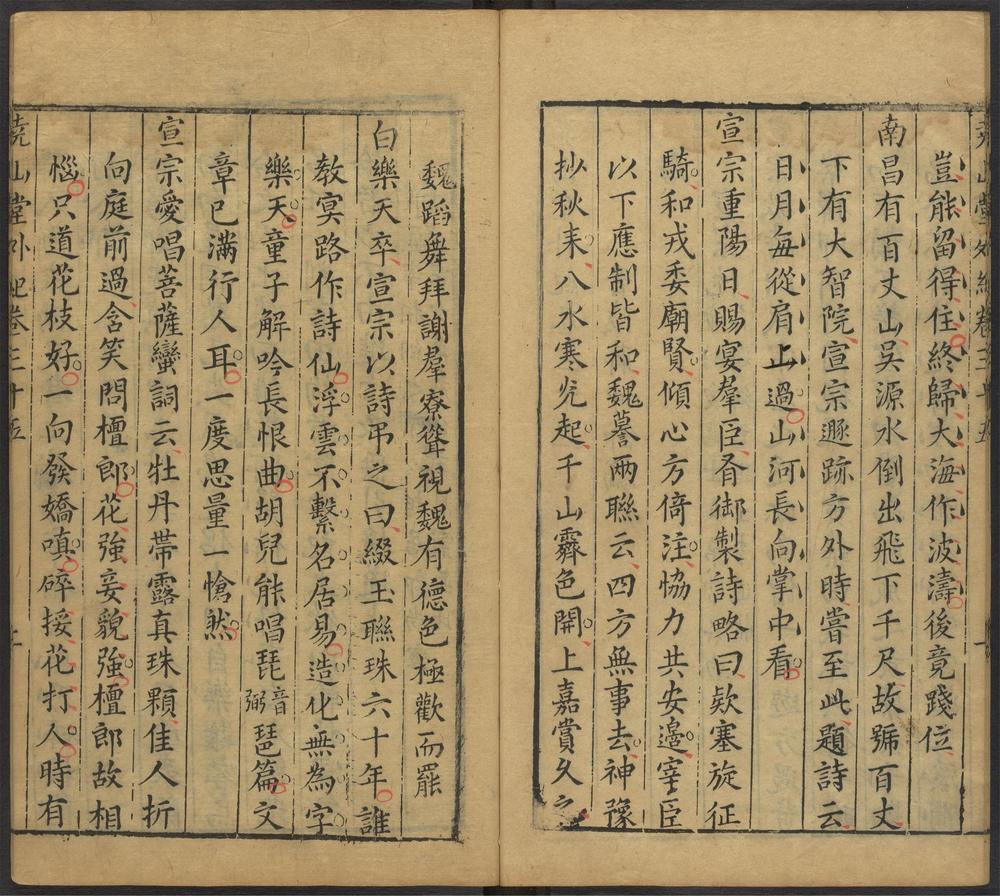 堯山堂外紀卷三十五
豈能留得住終歸大海作波濤後竟踐位
南昌有百丈山吳源水倒出飛下千尺故號百丈
下有大智院宣宗遯跡方外時嘗至此題詩云
日月每從肩上過山河長向掌中看
宣宗重陽日賜宴羣臣有御製詩略曰欵塞旋征
騎和戎委廟賢傾心方倚注協力共安邊宰臣
以下應制皆和魏謩兩聯云四方無事去神豫
抄秋来八水寒光起千山霽色開上嘉賞久之
魏蹈舞拜謝羣寮聳視魏有德色極歡而罷
白樂天卒宣宗以詩弔之曰綴玉聯珠六十年誰
教冥路作詩仙浮雲不繫名居易造化無為字
樂天童子解吟長恨曲胡兒能唱琵音弼琶篇文
章已滿行人耳一度思量一愴然
宣宗愛唱菩薩蠻詞云牡丹帶露真珠顆佳人折
向庭前過含笑問檀郎花強妾貌強檀郎故相
惱只道花枝好一向發嬌嗔碎挼花打人時有
堯山堂外紀卷三十五